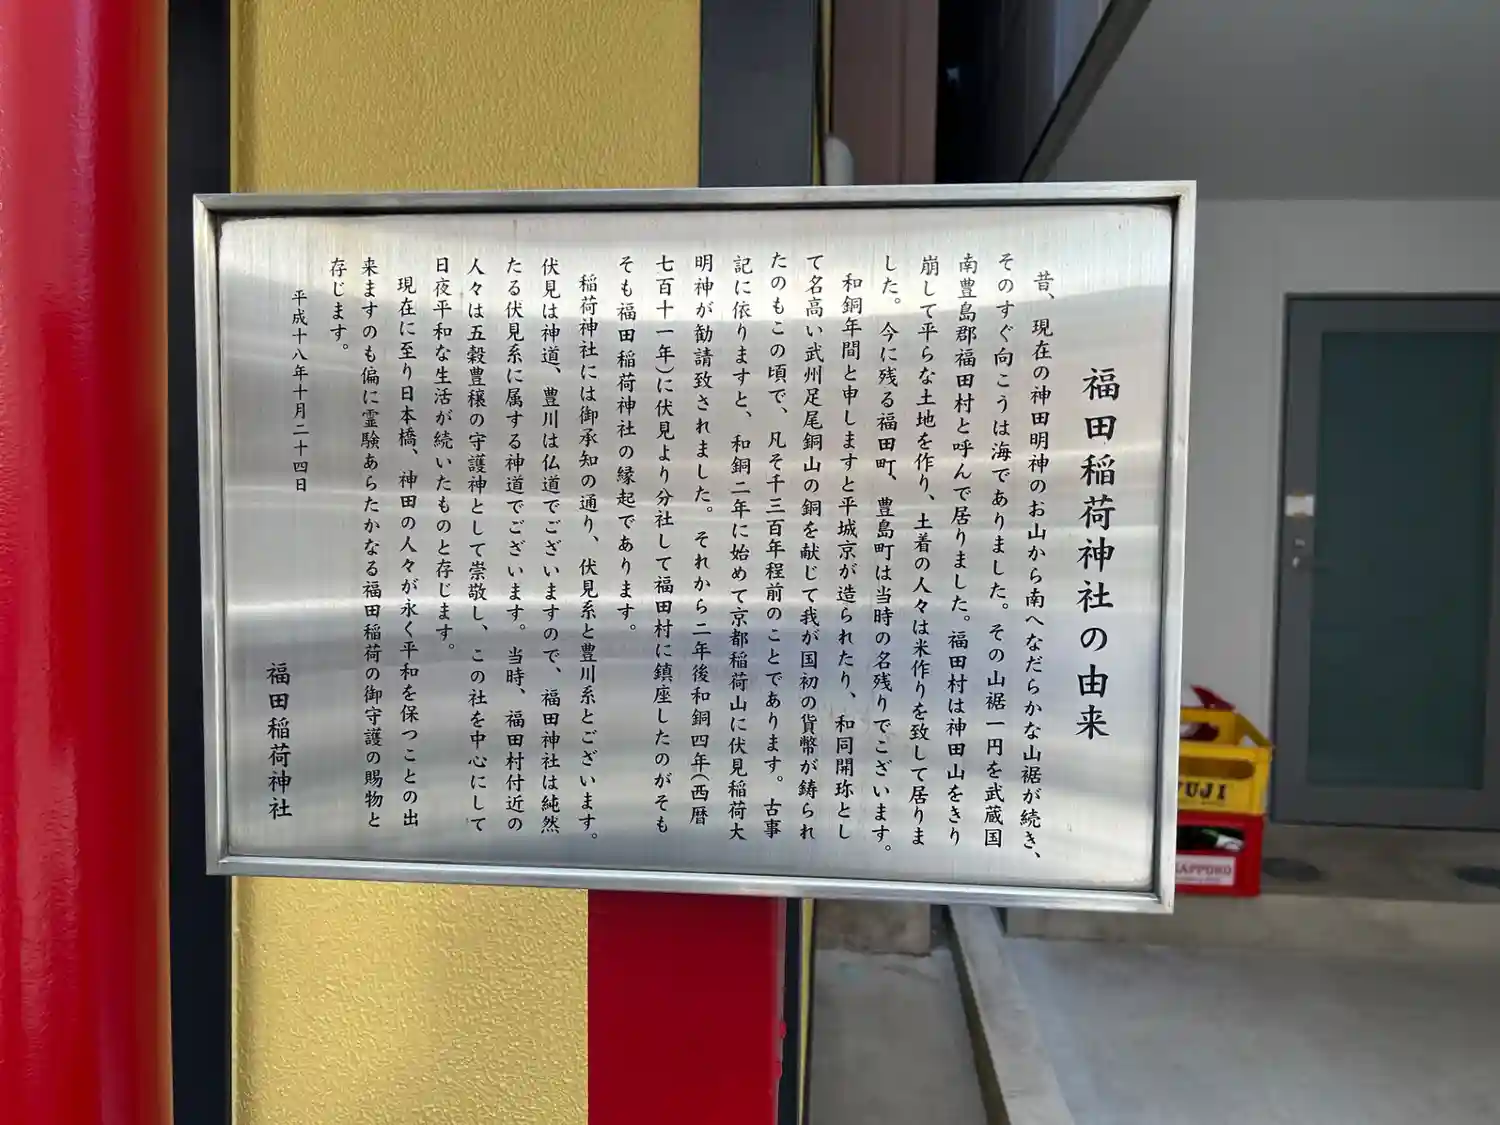 福田稲荷神社の由来
昔、現在の神田明神のお山から南へなだらかな山裾が続き、
そのすぐ向こうは海でありました。その山裾一円を武蔵国
南豊島郡福田村と呼んで居りました。福田村は神田山をきり
崩して平らな土地を作り、土着の人々は米作りを致して居りま
した。今に残る福田町、豊島町は当時の名残りでございます。
和銅年間と申しますと平城京が造られたり、和同開珎とし
て名高い武州足尾銅山の銅を献じて我が国初の貨幣が鋳られ
たのもこの頃で、凡そ千三百年程前のことであります。古事
記に依りますと、和銅二年に始めて京都稲荷山に伏見稲荷大
明神が勧請致されました。それから二年後和銅四年(西暦
七百十一年)に伏見より分社して福田村に鎮座したのがそも
そも福田稲荷神社の縁起であります。
稲荷神社には御承知の通り、伏見系と豊川系とございます。
伏見は神道、豊川は仏道でございますので、福田神社は純然
たる伏見系に属する神道でございます。当時、福田村付近の
人々は五穀豊穣の守護神として崇敬し、この社を中心にして
日夜平和な生活が続いたものと存じます。
現在に至り日本橋、神田の人々が永く平和を保つことの出
来ますのも偏に霊験あらたかなる福田稲荷の御守護の賜物と
存じます。
平成十八年十月二十四日
福田稲荷神社
YUJI
SAPPORO